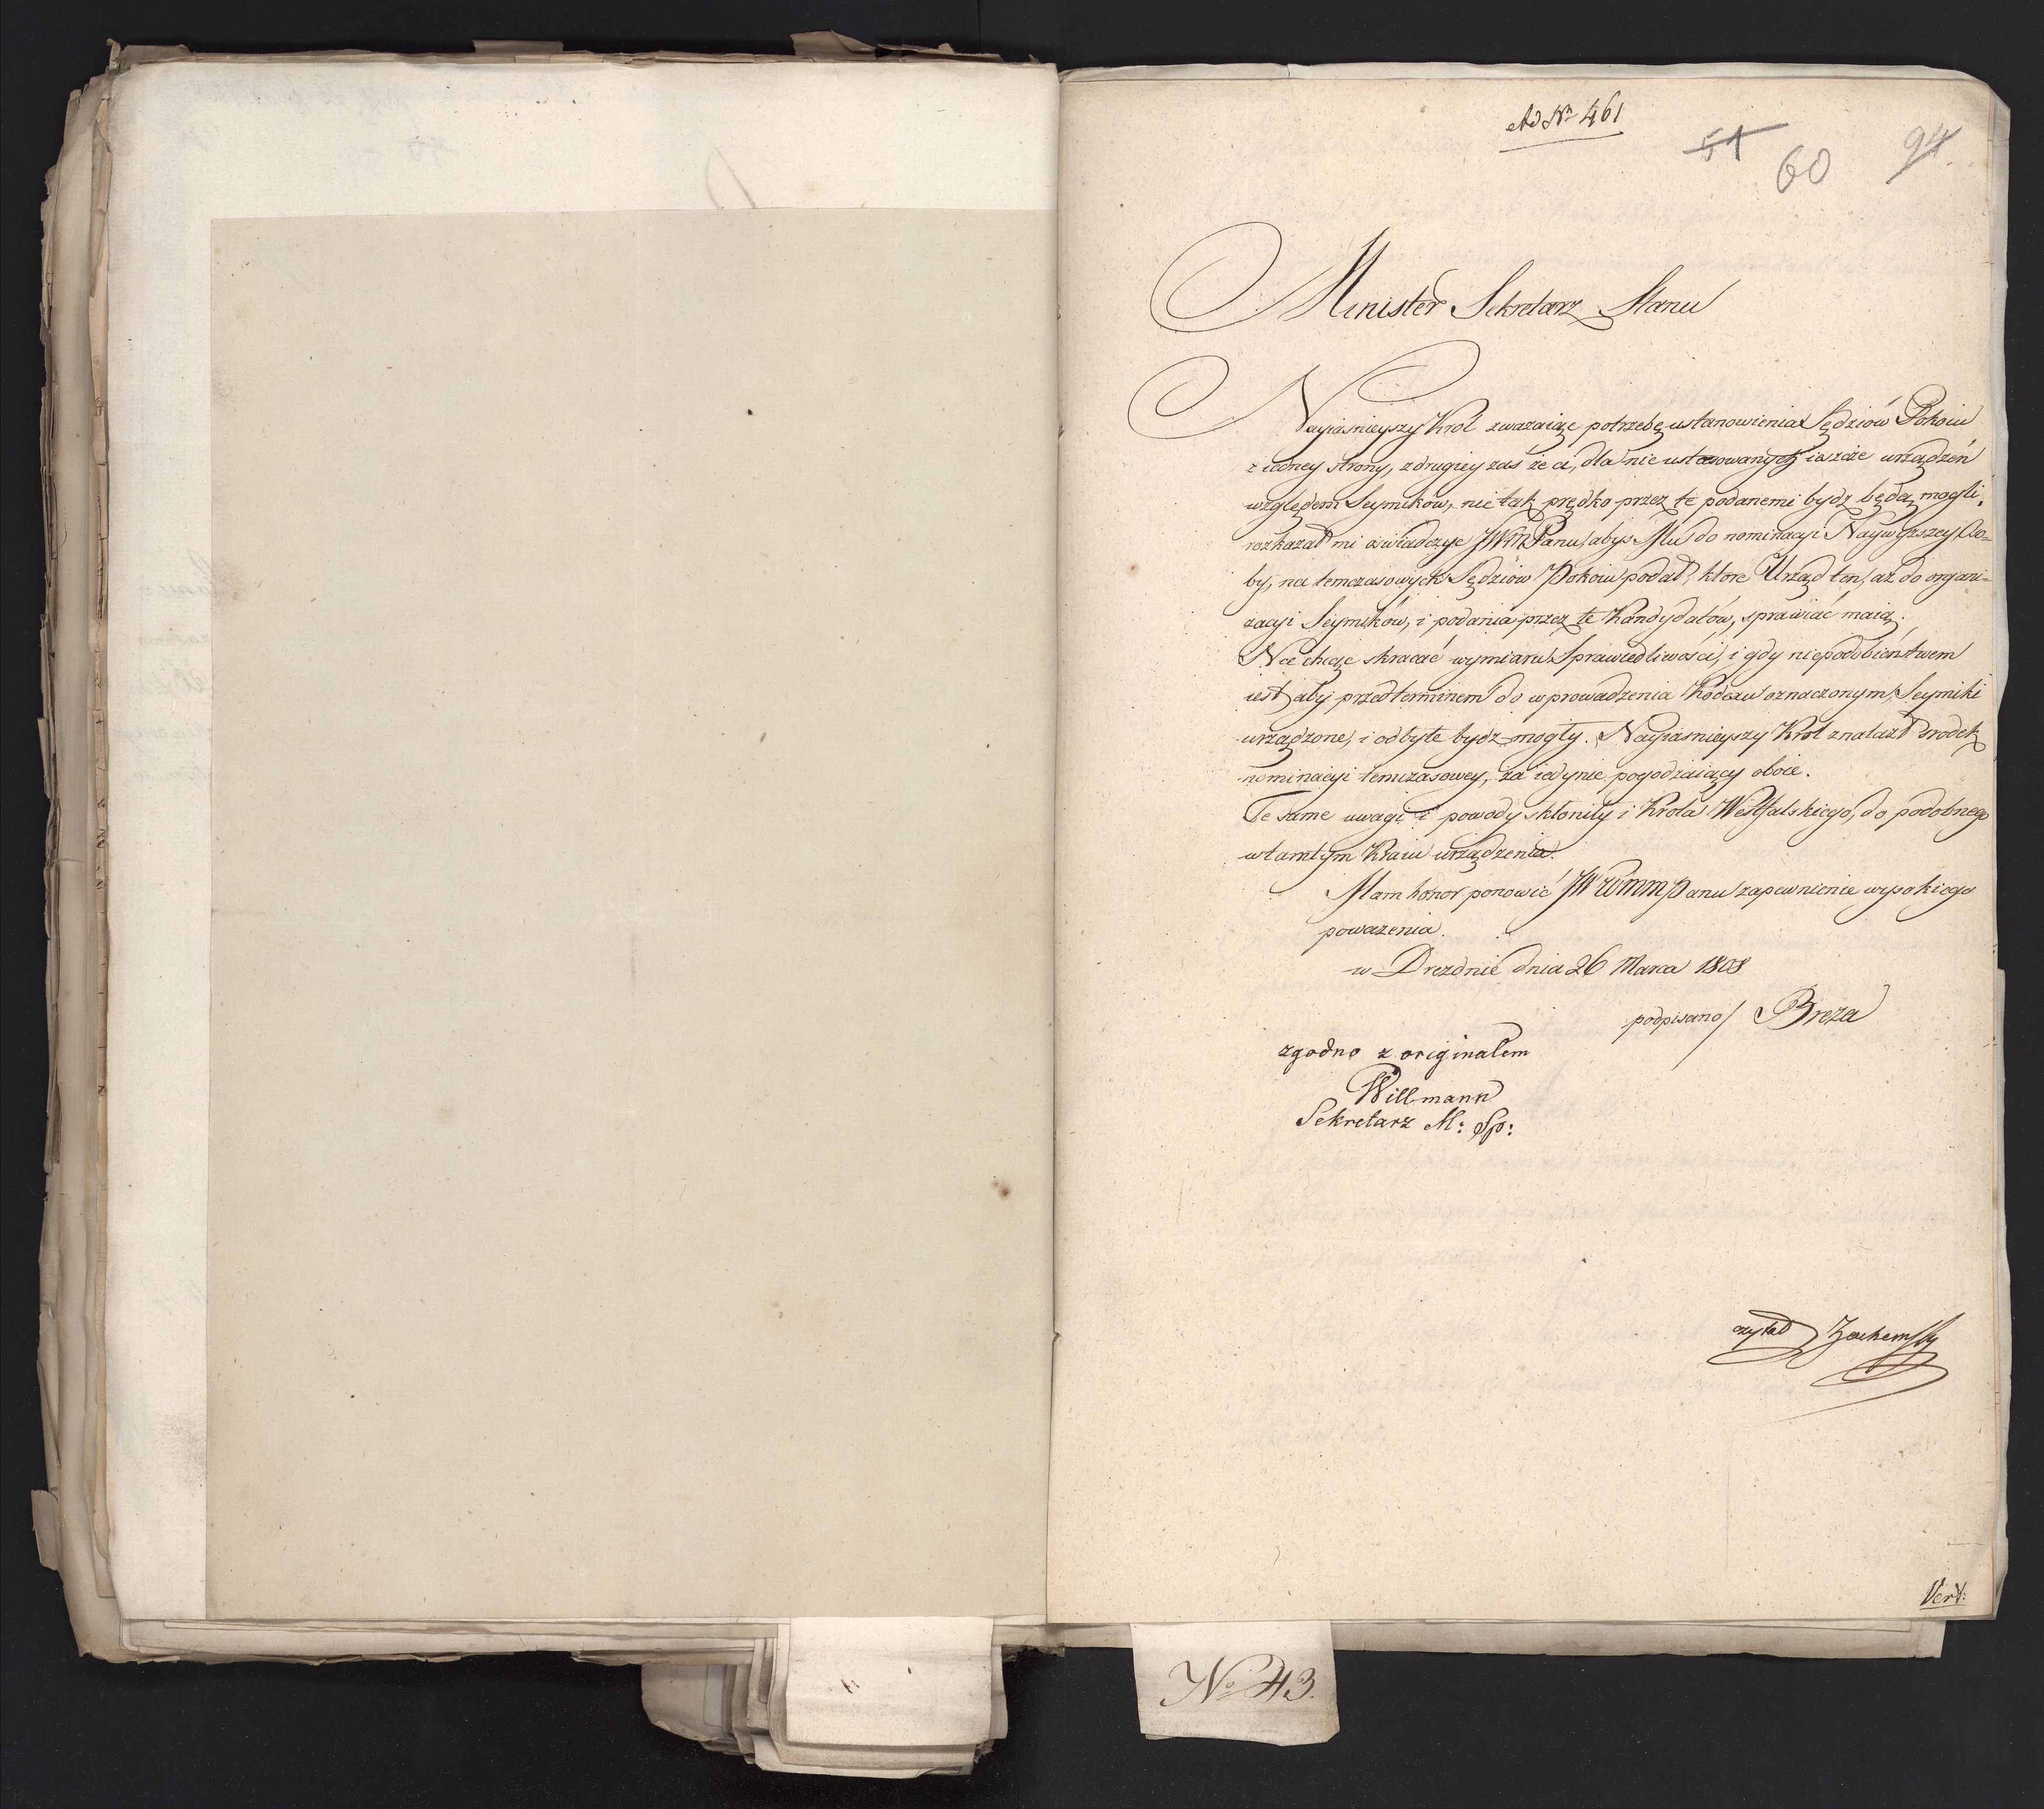 Ad Nr 461
51 60 94.
Minister Sekretarz Stanu
Nayiaśnieyszy Król zważaiąc potrzebę ustanowienia Sędziów Pokoiu
z iedney strony, z drugiey zaś że ci, dla nie ustosowanych ieszcze urządzeń
względem Seymików, nie tak prędko przez te podanemi bydz będą mogli,
rozkazał mi oświadczyć JWM Panu, abyś Mu do nominacyi Naywyższey Oso-
by, na temczasowych Sędziów Pokoiu podał, które Urząd ten, aż do organi-
zacyi Seymików, i podania przez te Kandydatów, sprawiać maią.
Nie chcąc skracać wymiaru Sprawiedliwości, i gdy niepodobieństwem
iest, aby przed terminem do wprowadzenia Kodexu oznaczonym, Seymiki
urządzone, i odbyte bydz mogły. Nayiaśnieyszy Król znalazł środek
nominacyi temczasowey, za iedynie pogodzaiący oboie.
Te same uwagi i powody skłoniły i Króla Westfalskiego, do podobnego
w tamtym Kraiu urządzenia.
Mam honor ponowić JW Panu zapewnienie wysokiego
poważenia.
w Dreznie dnia 26 Marca 1808
podpisano/ Breza
zgodno z originałem
Willmann
Sekretarz M: Sp:
czytał
Vert:
No 43.